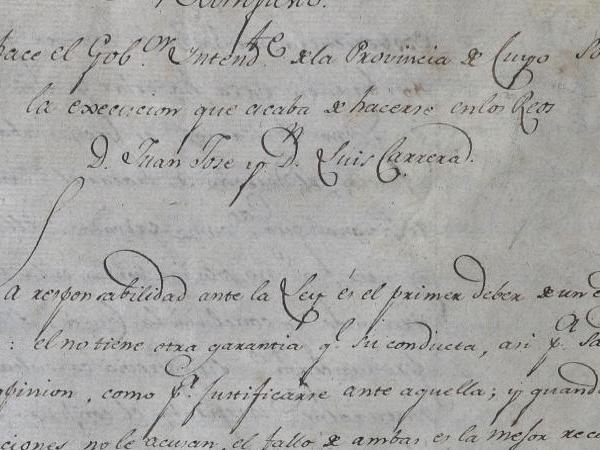 hace el Gob.or Intend.te de la Provincia de Cuyo
la execucion que acaba de hacerse en los Reos
D. Juan Jose y D.n Luis Carrera.
La responsabilidad ante la Ley és el primer deber de un
: el no tiene otra garantia q.e su conducta, asi p.a
opinion, como p.a justificarse ante aquella; y quando
ciones no le acusan, el fallo de ambas es la mejor